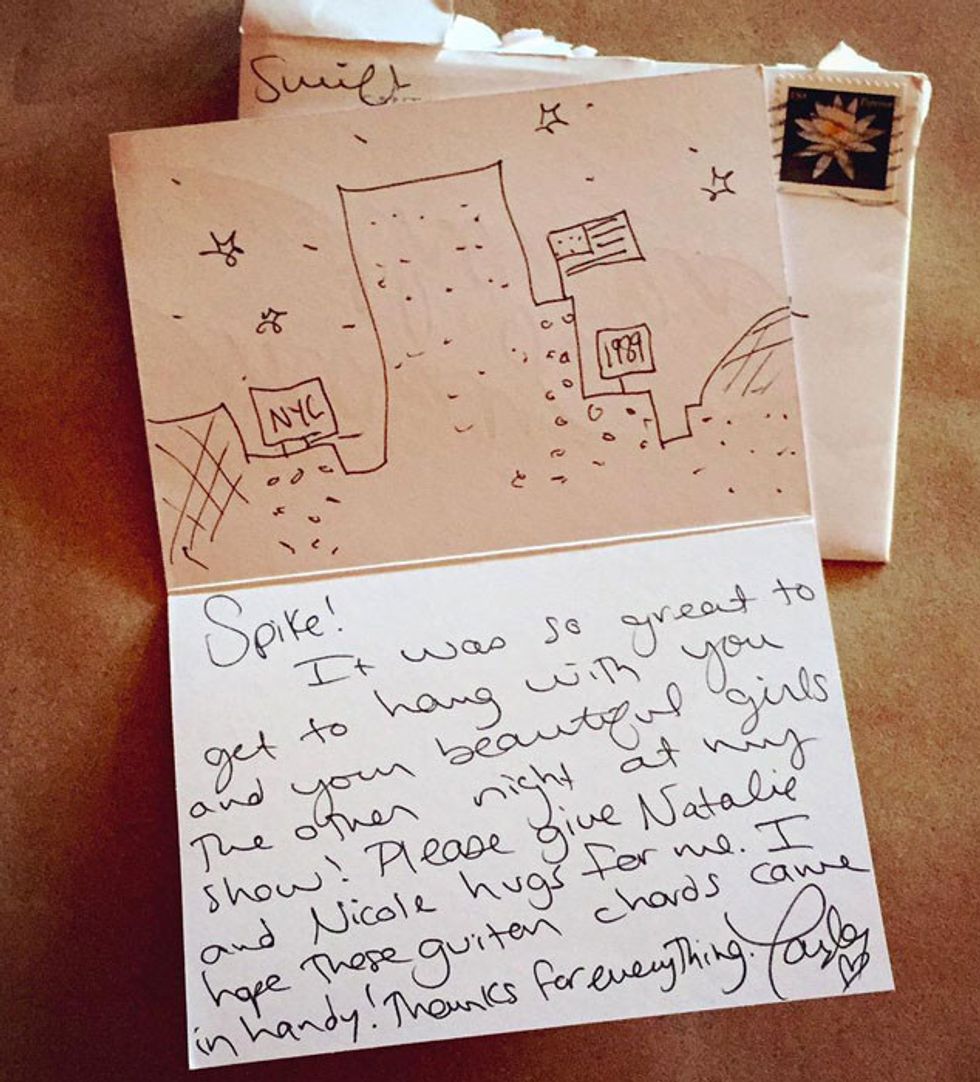 Swift
NYC
1989
Spike!
It was so great to
get to hang with you
and your beautiful girls
the other night at my
show! Please give Natalie
and Nicole hugs for me. I
hope these guitar chords came
in handy! Thanks for everything!
Taylor